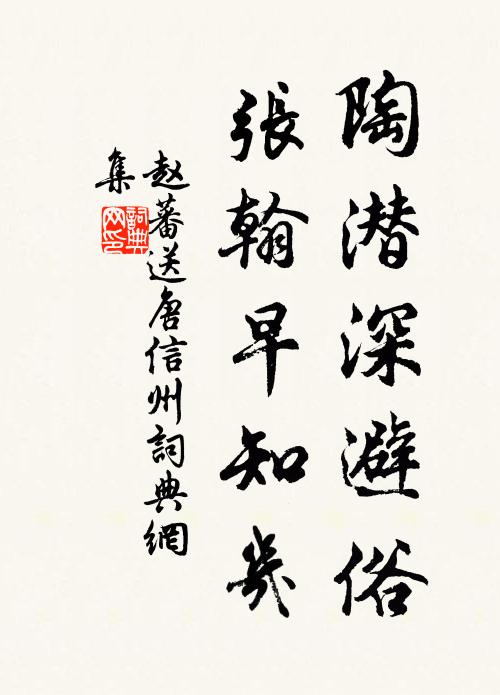 陶潜深避俗
張翰早知幾
赵蕃送唐信州詞典網
集
詞典
网印